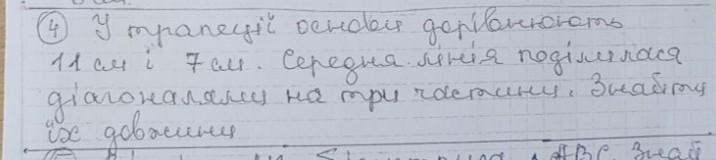 ④ У трапеції основи дорівнюють
11 см і 7 см. Середня лінія поділилася
діагоналями на три частини. Знайти
їх довжини
АВС. Знай